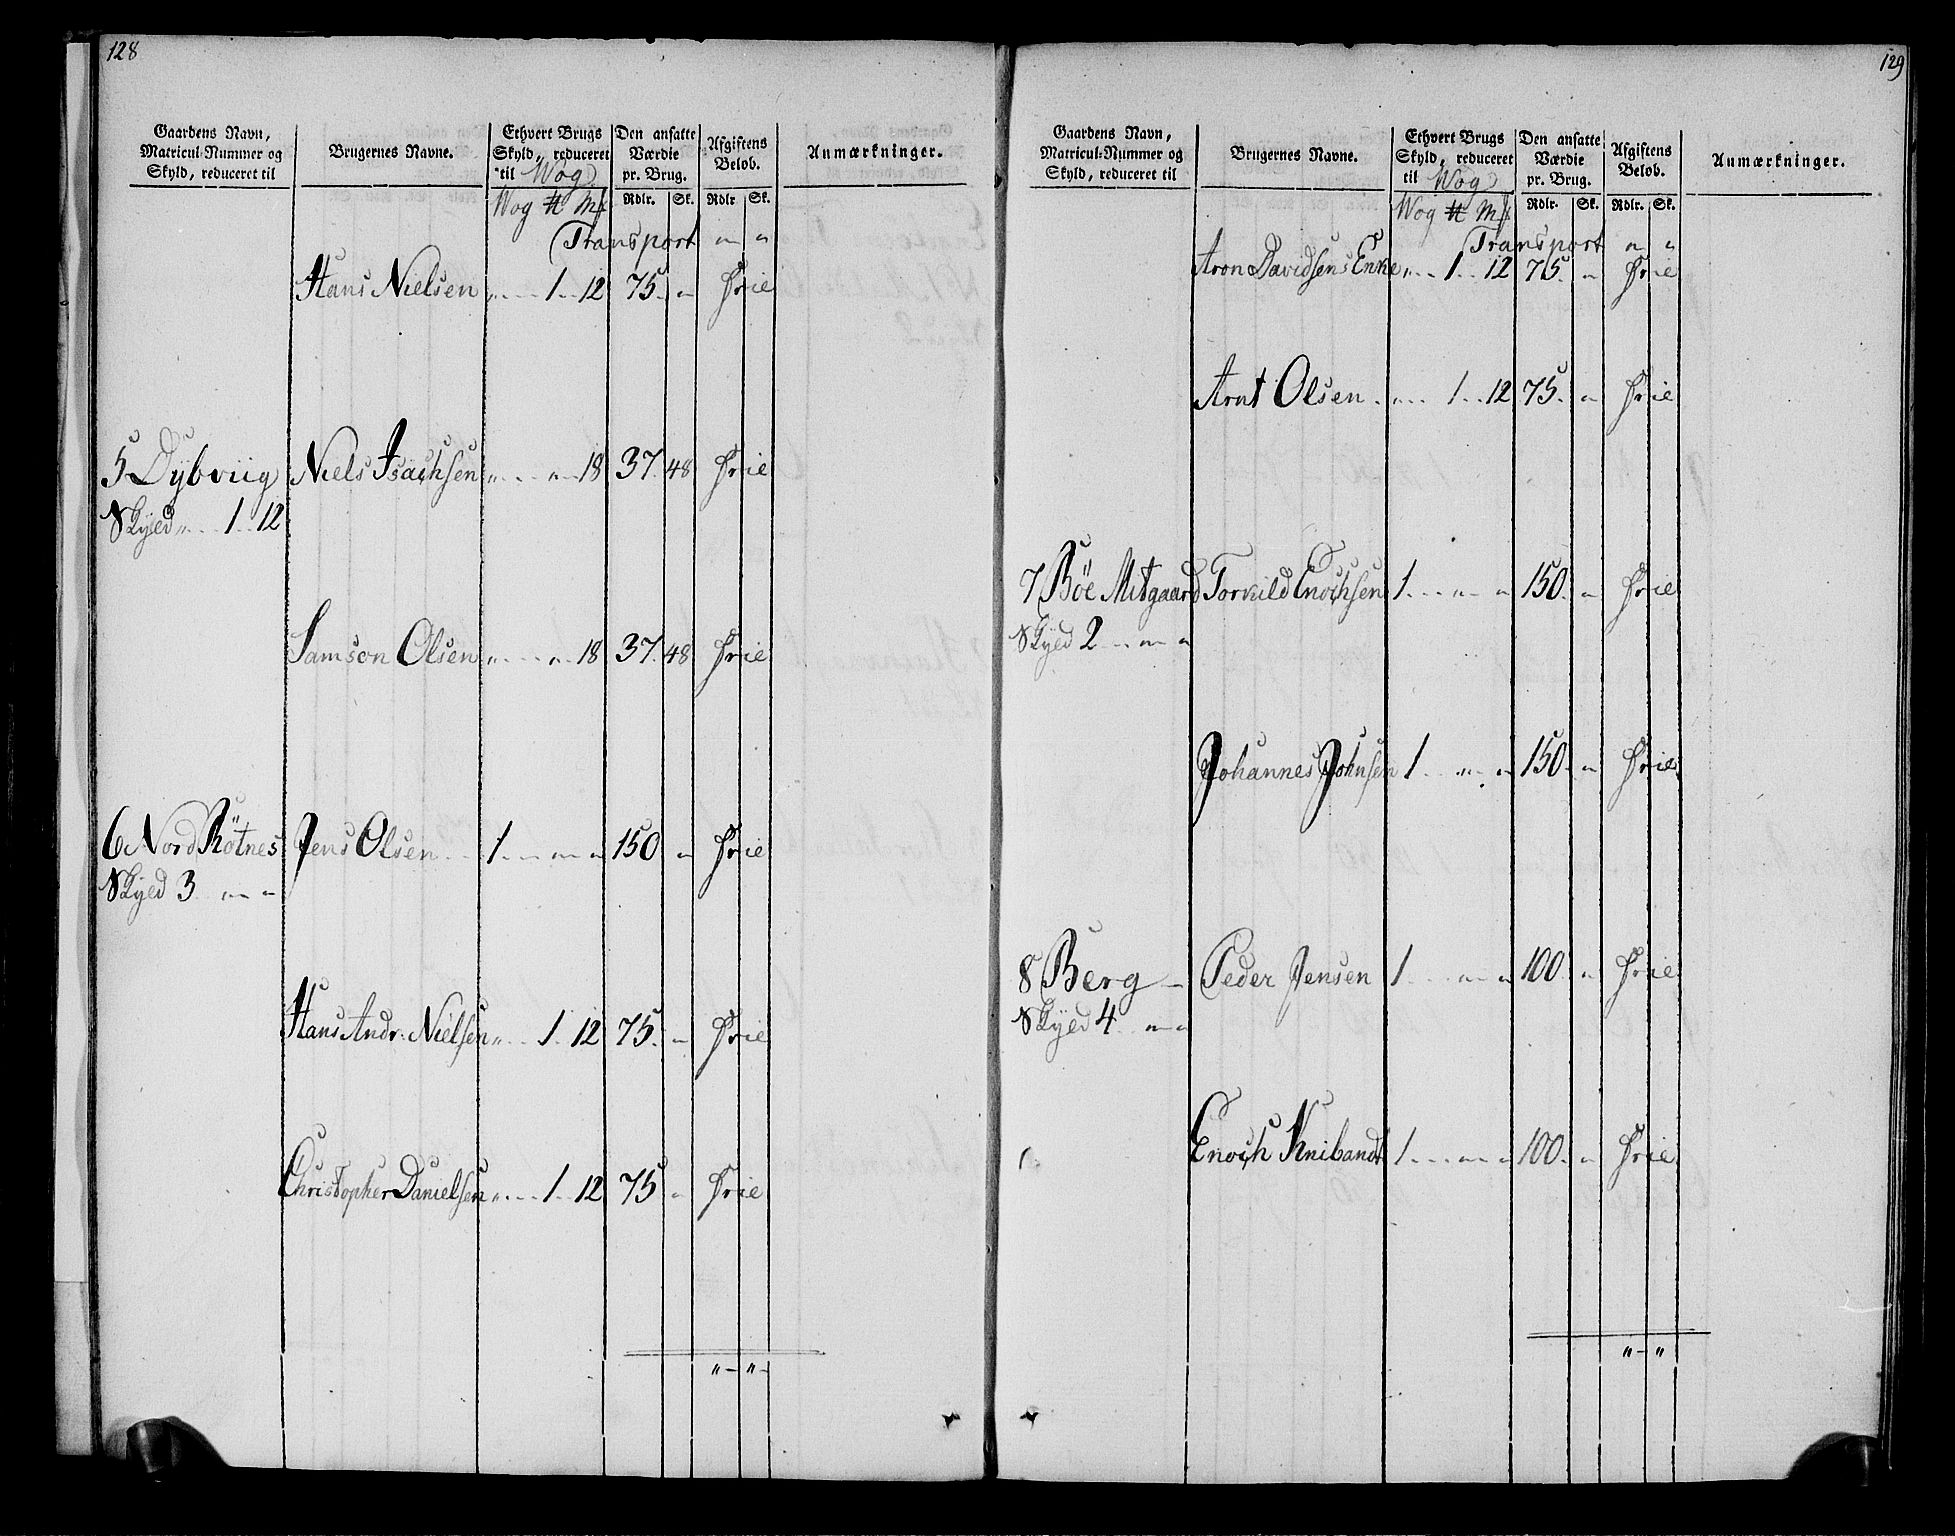 128
Gaardens Navn, Matricul-Nummer og Skyld, reduceret til
Brugernes Navne.
Ethvert Brugs Skyld, reduceret til Wog
Den ansatte Værdie pr. Brug.
Afgiftens Beløb.
Anmærkninger.
Wog ℔ M𝔨 Rdlr. Sk. Rdlr. Sk.
Transport " "
Hans Nielsen " 1 12 75. " Frie
5 Dybviig Niels Isachsen " " 18 37. 48 Frie
Skyld " 1 12
Samson Olsen " " 18 37. 48 Frie
6 Nord Rötnes Jens Olsen 1 " " 150 " Frie
Skyld 3 " "
Hans Andr: Nielsen " 1 12 75. " Frie
Christopher Danielsen " 1 12 75 " Frie
" "
129
Gaardens Navn, Matricul-Nummer og Skyld, reduceret til
Brugernes Navne.
Ethvert Brugs Skyld, reduceret til Wog
Den ansatte Værdie pr. Brug.
Afgiftens Beløb.
Anmærkninger.
Wog ℔ M𝔨 Rdlr. Sk. Rdlr. Sk.
Transport " "
Aron Davidsens Enke " 1 12 75. " Frie
Arnt Olsen " 1 12 75. " Frie
7 Böe Mitgaard Torkild Enochsen 1 " " 150. " Frie
Skyld 2 " "
Johannes Johnsen 1 " " 150. " Frie
8 Berg Peder Jensen 1 " " 100. " Frie
Skyld 4 " "
Enoch Knibandt 1 " " 100. " Frie
" "